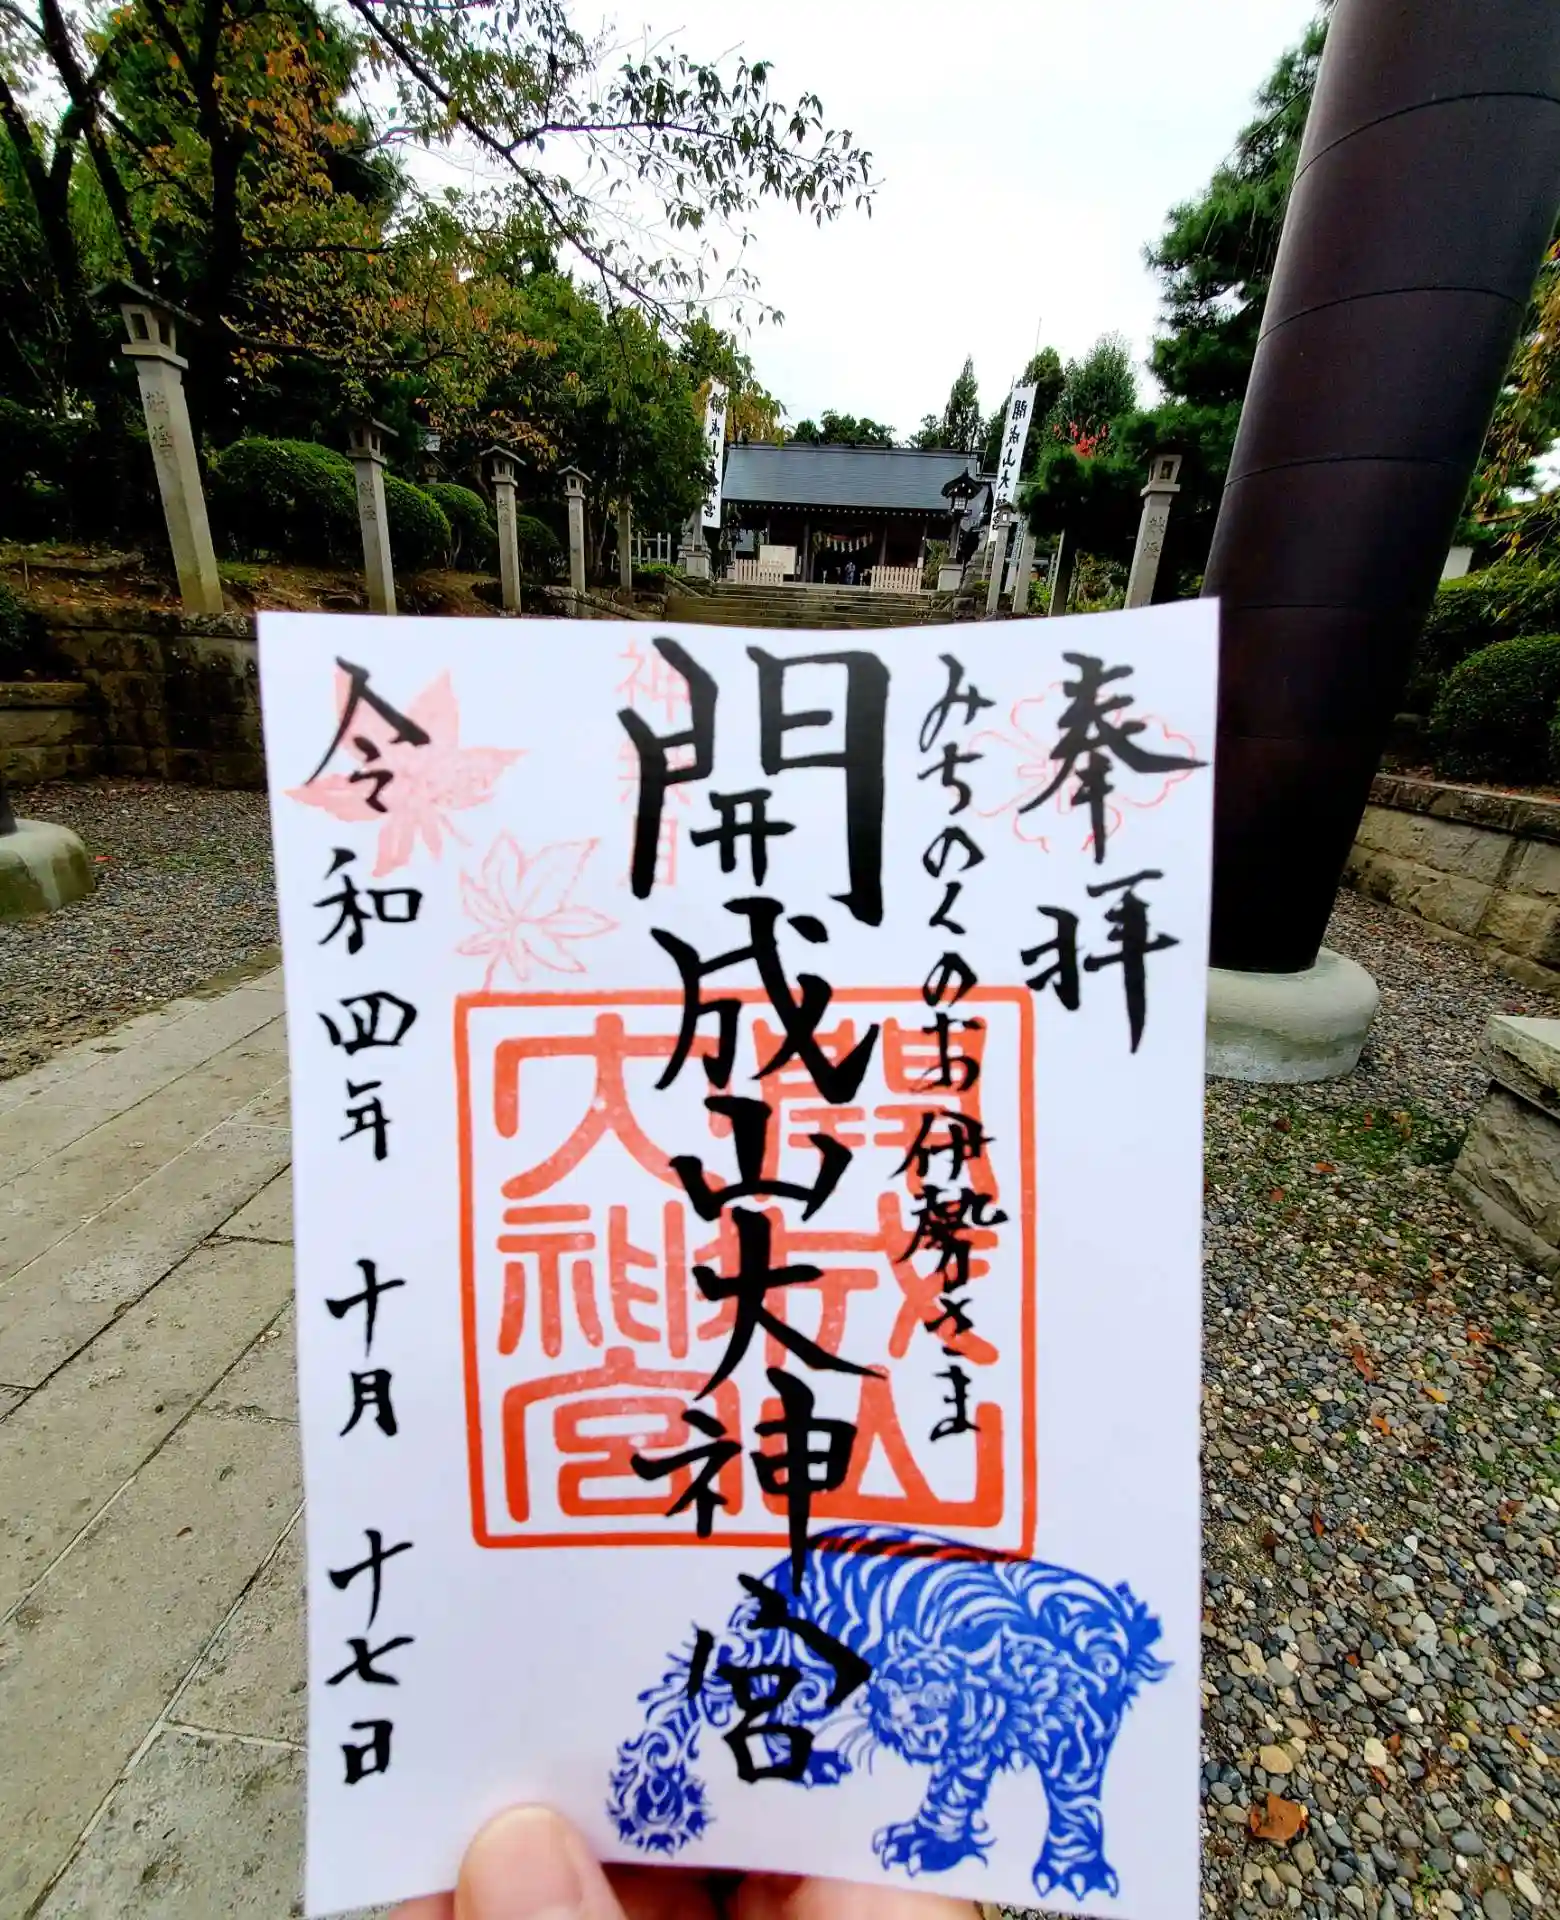 開成山大神宮
開成山大神宮
奉拝
みちのくのお伊勢さま
開成山大神宮
開成山大神宮
神無月
令和四年 十月 十七日